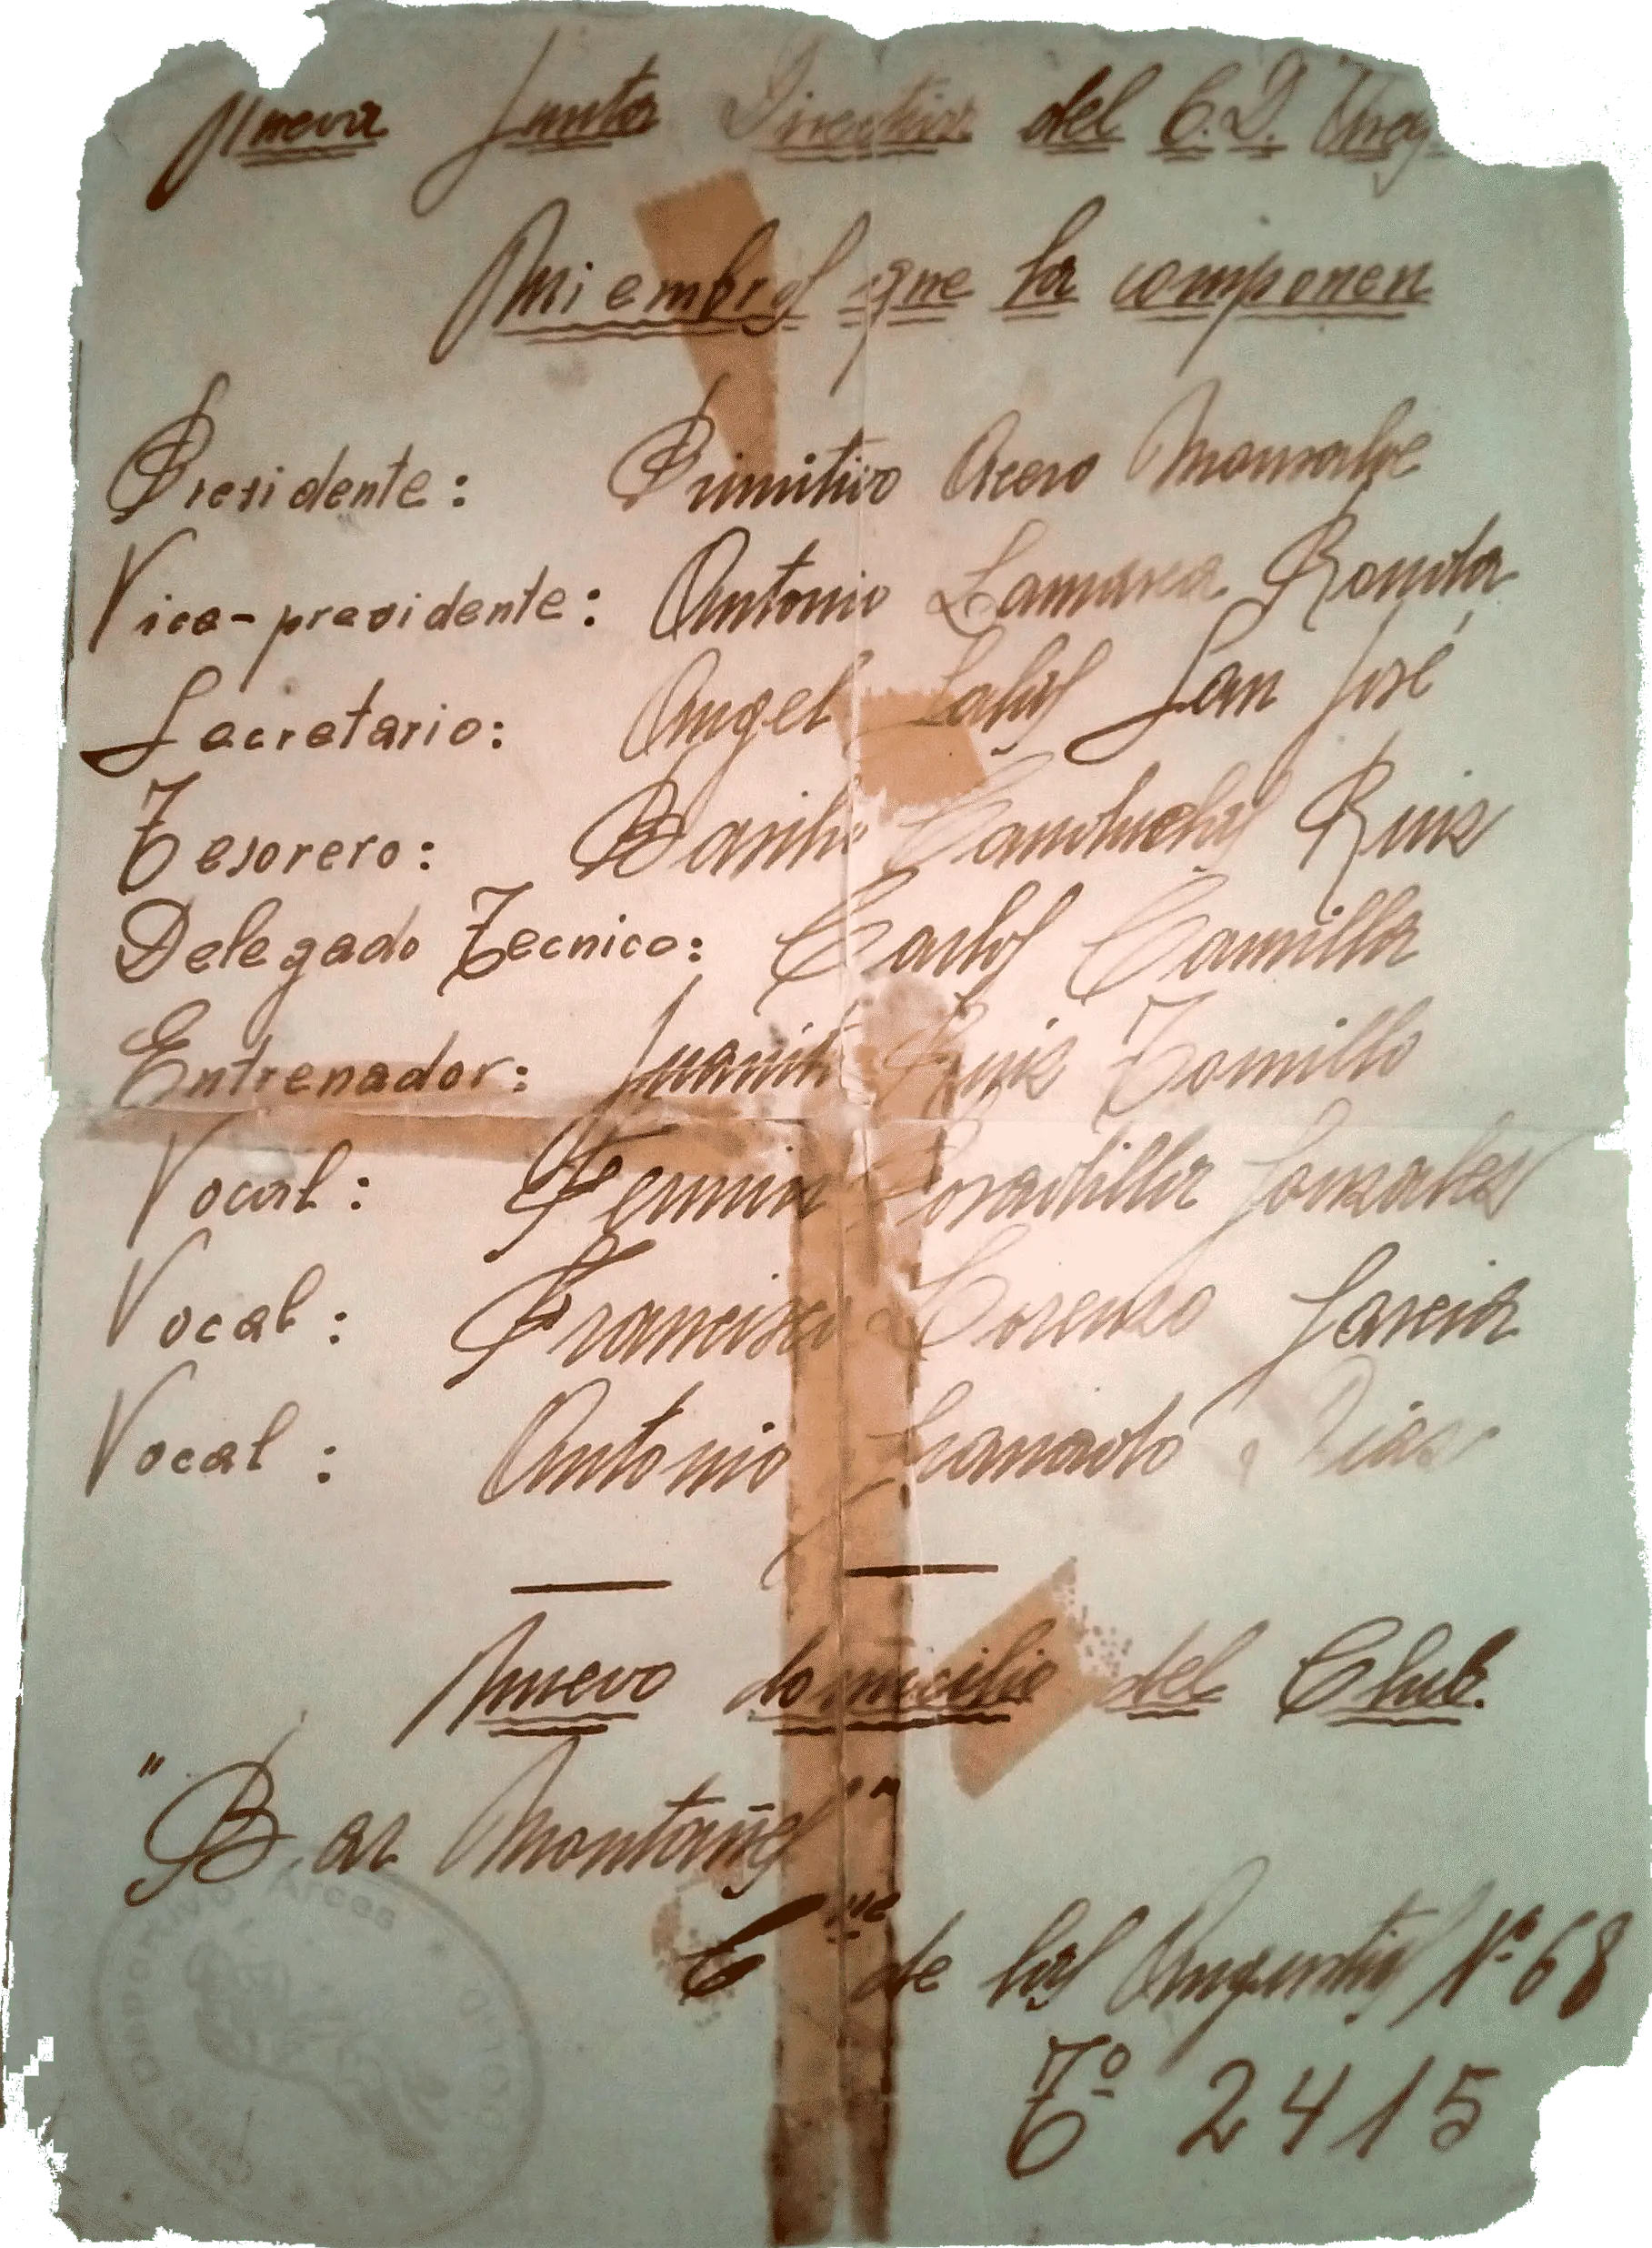 Nueva Junta Directiva del C.D.
Miembros que la componen
Presidente: Primitivo Acero Monsalve
Vice-presidente: Antonio Lamarca Ronda
Secretario: Angel San José
Tesorero: Basilio Ruiz
Delegado Tecnico: Carlos Camilla
Entrenador: Juanito Ruiz Tomillo
Vocal: Fermin Gonzalez
Vocal: Francisco Lorenzo Garcia
Vocal: Antonio Granado Diaz
Nuevo domicilio del Club.
"Bar Montañes"
C de las Angustias Nº 68
Tº 2415
Deportivo Arces